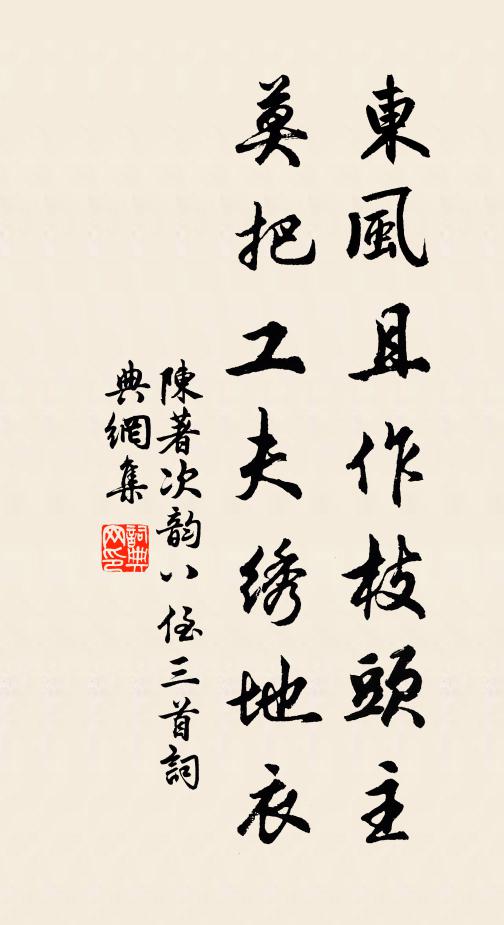 東風且作枝頭主
莫把工夫绣地衣
陳著次韵八侄三首詞
典網集
詞典網印